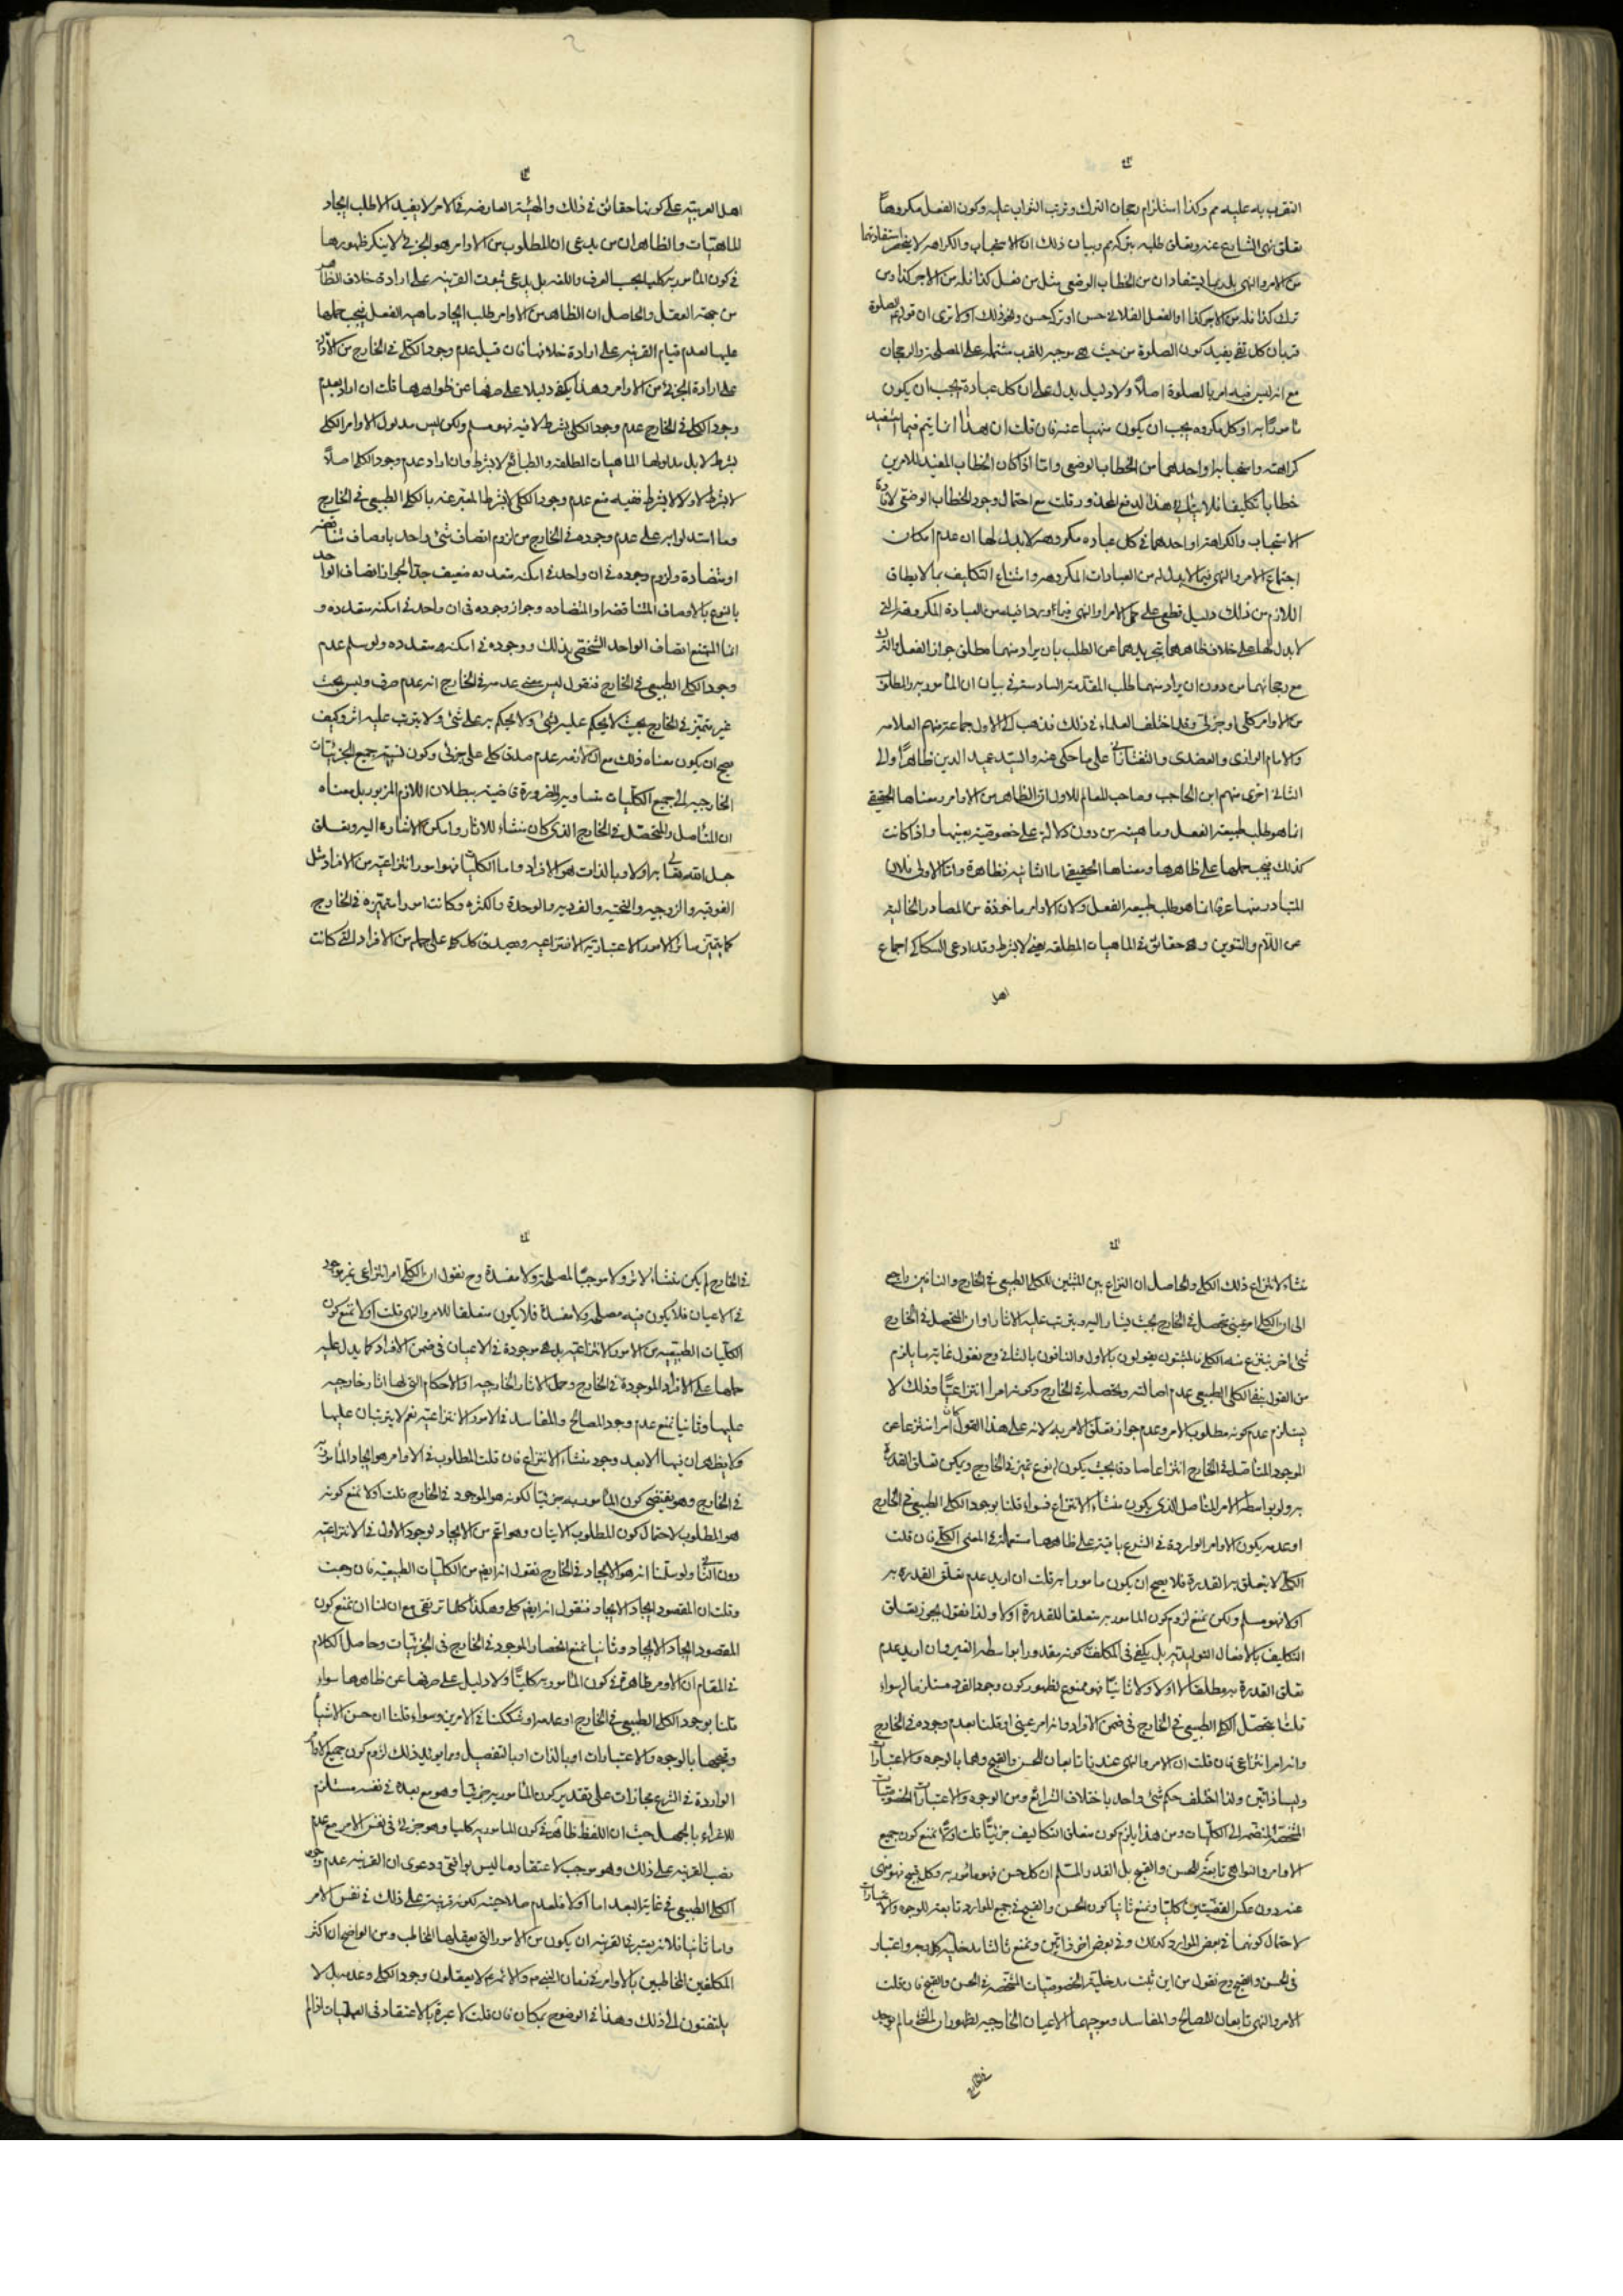 التقرب به عليه مم وكذا استلزام رجحان الترك وترتب الثواب عليه وكون الفعل مكروها
تعلق نهى الشارع عنه وتعلق طلبه بتركه مم وبيان ذلك ان الاستحباب والكراهه لا ينحصر استفادتهما
من الامر والنهى بل ربما يستفادان من الخطاب الوضعى مثل من فعل كذا فله من الاجر كذا ومن
ترك كذا فله من الاجر كذا او الفعل الفلانى حسن او تركه حسن ونحو ذلك اولا ترى ان قولهم الصلوة
قربان كل تقى يفيد كون الصلوة من حيث هى موجبه للقرب مشتمله على المصلحة والرجحان
مع انه ليس فيه امر بالصلوة اصلاً ولا دليل يدل على ان كل عبادة يجب ان يكون
مامورًا به او كل مكروه يجب ان يكون منهيا عنه فان قلت ان هذا انما يتم فيما استفيد
كراهته واستحبابه او احدهما من الخطاب الوضعى واما اذا كان الخطاب المفيد للامرين
خطابا تكليفيا فلا هذا لدفع المحذور قلت مع احتمال وجود الخطاب الوضعى لافادة
الاستحباب والكراهة او احدهما فى كل عباده مكروهه لا بدل لها ان عدم امكان
اجتماع الامر والنهى فيما لا بدل له من العبادات المكروهه وامتناع التكليف بما لا يطاق
اللازم من ذلك دليل قطعى على حمل الامر او النهى فيما ورد فيه من العبادة المكروهة التى
لا بدل لها على خلاف ظاهرهما بتجريدهما عن الطلب بان يراد منهما مطلق جواز الفعل والترك
مع رجحانهما من دون ان يراد منهما طلب المقدمة السادسة فى بيان ان المامور به والمطلوب
من الاوامر كلى او جزئى وقد اختلف العلماء فى ذلك فذهب الى الاول جماعة منهم العلامه
والامام الرازى والعضدى والتفتازانى على ما حكى عنه والسيد عميد الدين ظاهرًا والى
الثانى اخرى منهم ابن الحاجب وصاحب المعالم للاول ان الظاهر من الاوامر ومعناها الحقيقى
انما هو طلب طبيعة الفعل وماهيته من دون دلالة على خصوصية بعينها واذا كانت
كذلك يجب حملها على ظاهرها ومعناها الحقيقى اما الثانيه فظاهرة واما الاولى فلان
المتبادر منها عرفا انما هو طلب طبيعه الفعل ولان الاوامر ماخوذة من المصادر الخالية
عن اللام والتنوين وهى حقائق فى الماهيات المطلقه يعنى لا بشرط وقد ادعى السكاكى اجماع
اهل
اهل العربيه على كونها حقائق فى ذلك والهيئه العارضه فى الامر لا يفيد الا طلب ايجاد
الماهيات والظاهر ان من يدعى ان المطلوب من الاوامر هو الجزئى لا ينكر ظهورها
فى كون المامور به كليا بحسب العرف واللغه بل يدعى ثبوت القرينه على ارادة خلاف الظاهر
من جهة العقل والحاصل ان الظاهر من الاوامر طلب ايجاد ماهيه الفعل فيجب حملها
عليها لعدم قيام القرينه على ارادة خلافها فان قيل عدم وجود الكلى فى الخارج من
على ارادة الجزئى من الاوامر وهذا يكفى دليلا على صرفها عن ظواهرها قلت ان اراد بعدم
وجود الكلى فى الخارج عدم وجود الكلى بشرط لا فيه فهو مسلم ولكن ليس مدلول الاوامر الكلى
بشرط لا بل مدلولها الماهيات المطلقه والطبائع لا بشرط وان اراد عدم وجود الكلى اصلاً
لا بشرط لا ولا لا بشرط ففيه منع عدم وجود الكلى لا بشرط المعبر عنه بالكلى الطبيعى فى الخارج
وما استدلوا به على عدم وجوده فى الخارج من لزوم اتصاف شئ واحد باوصاف متناقضه
او متضادة ولزوم وجوده فى ان واحد فى امكنه متعدده ضعيف جدا لجواز اتصاف الواحد
بالنوع بالاوصاف المتناقضه او المتضاده وجواز وجوده فى ان واحد فى امكنه متعدده و
انما الممتنع اتصاف الواحد الشخصى بذلك ووجوده فى امكنه متعدده ولو سلم عدم
وجود الكلى الطبيعى فى الخارج فنقول ليس معنى عدمه فى الخارج انه عدم صرف وليس بحت
غير متميز فى الخارج بحيث لا يحكم عليه بشئ ولا يحكم به على شئ ولا يترتب عليه اثر وكيف
يصح ان يكون معناه ذلك مع ان لازمه عدم صدق كلى على جزئى وكون نسبة جميع الجزئيات
الخارجيه الى جميع الكليات متساويه والضرورة قاضية ببطلان اللازم المزبور بل معناه
ان المتاصل والمتحصل فى الخارج الذى كان منشاء للاثار وامكن الاشاره اليه وتعلق
جعل الله تعالى به اولا وبالذات هو الافراد واما الكليات فهو امور انتزاعيه من الافراد مثل
الفوقيه والزوجيه والتحتيه والفرديه والوحدة والكثره وكانت امورا متميزه فى الخارج
كما يتميز سائر الامور الاعتباريه الانتزاعيه وصدق كل كلى على جمله من الافراد التى كانت
منشاء لانتزاع ذلك الكلى والحاصل ان النزاع بين المثبتين للكلى الطبيعى فى الخارج والنافين راجع
الى ان الكلى امر عينى متحصل فى الخارج بحيث يشار اليه ويترتب عليه الاثار او ان المتحصل فى الخارج
شئ اخر ينتزع منه الكلى فالمثبتون يقولون بالاول والنافون بالثانى وح نقول غاية ما يلزم
من القول بنفى الكلى الطبيعى عدم اصالته وتحصله فى الخارج وكونه امرا انتزاعيًا وذلك لا
يستلزم عدم كونه مطلوب الامر وعدم جواز تعلق الامر به لانه على هذا القول كان امرا منتزعا عن
الموجود المتاصل فى الخارج انتزاعا صادقا بحيث يكون له نوع تميز فى الخارج ويمكن تعلق القدرة
به ولو بواسطه الامر المتاصل الذى يكون منشاء الانتزاع فسواء قلنا بوجود الكلى الطبيعى فى الخارج
او عدمه يكون الاوامر الواردة فى الشرع باقية على ظاهرها مستعملة فى المعنى الكلى فان قلت
الكلى لا يتعلق به القدرة فلا يصح ان يكون مامورا به قلت ان اريد عدم تعلق القدره به
اولا فهو مسلم ولكن نمنع لزوم كون المامور به متعلقا للقدرة اولا ولذا نقول يجوز تعلق
التكليف بالافعال التوليديه بل يكفى فى المكلف كونه مقدورا بواسطه الغير وان اريد عدم
تعلق القدرة به مطلقا لا اولا ولا ثانيًا فهو ممنوع لظهور كون وجود الفرد مستلزما له سواء
قلنا بتحصل الكلى الطبيعى فى الخارج فى ضمن الافراد وانه امر عينى او قلنا بعدم وجوده فى الخارج
وانه امر انتزاعى فان قلت ان الامر والنهى عندنا تابعان للحسن والقبح وهما بالوجوه والاعتبارات
وليسا ذاتيين ولذا اختلف حكم شئ واحد باختلاف الشرائع ومن الوجوه والاعتبارات الخصوصيات
المشخصه المنضمه الى الكليات ومن هذا يلزم كون متعلق التكاليف جزئيًا قلت اولًا نمنع كون جميع
الاوامر والنواهى تابعة للحسن والقبح بل القدر المسلم ان كل حسن فهو مامور به وكل قبيح فهو منهى
عنه دون عكس القضيتين كليا ونمنع ثانيا كون الحسن والقبح فى جميع الموارد تابعه للوجوه والاعتبارات
لاحتمال كونهما فى بعض الموارد كذلك وفى بعض اخر ذاتيين ونمنع ثالثا مدخلية كل وجه واعتبار
فى الحسن والقبح وح نقول من اين ثبت مدخلية الخصوصيات المشخصه فى الحسن والقبح فان قلت
الامر والنهى تابعان للمصالح والمفاسد وموجبهما الاعيان الخارجيه لظهور ان الشئ ما لم يوجد
فى الخارج
فى الخارج لم يكن منشاء لاثر ولا موجبًا لمصلحة ولا مفسدة وح نقول ان الكلى امر انتزاعى غير موجود
فى الاعيان فلا يكون فيه مصلحه ولا مفسدة فلا يكون متعلقا للامر والنهى قلت اولا نمنع كون
الكليات الطبيعيه من الامور الانتزاعيه بل هى موجودة فى الاعيان فى ضمن الافراد كما يدل عليه
حملها على الافراد الموجودة فى الخارج وحمل الاثار الخارجيه او الاحكام التى لها اثار خارجيه
عليها وثانيا نمنع عدم وجود المصالح والمفاسد فى الامور الانتزاعيه نعم لا يترتبان عليها
ولا يظهران فيها الا بعد وجود منشاء الانتزاع فان قلت المطلوب فى الاوامر هو ايجاد المامور به
فى الخارج وهو يقتضى كون المامور به جزئيا لكونه هو الموجود فى الخارج قلت اولا نمنع كونه
هو المطلوب لاحتمال كون المطلوب الاتيان وهو اعم من الايجاد لوجود الاول فى الانتزاعيه
دون الثانى ولو سلمنا انه هو الايجاد فى الخارج نقول انه ايضم من الكليات الطبيعيه فان رجعت
وقلت ان المقصود ايجاد الايجاد فنقول انه ايضم كلى وهكذا كلما ترتقى مع ان لنا ان نمنع كون
المقصود ايجاد الايجاد وثانيا نمنع انحصار الموجود فى الخارج فى الجزئيات وحاصل الكلام
فى المقام ان الاوامر ظاهرة فى كون المامور به كليًا ولا دليل على صرفها عن ظاهرها سواء
قلنا بوجود الكلى الطبيعى فى الخارج او عدمه او شككنا فى الامرين وسواء قلنا ان حسن الاشياء
وقبحها بالوجوه والاعتبارات او بالذات او بالتفصيل ومما يؤيد ذلك لزوم كون جميع الاوامر
الواردة فى الشرع مجازات على تقدير كون المامور به جزئيا وهو مع بعده فى نفسه مستلزم
للاغراء بالجهل حيث ان اللفظ ظاهر فى كون المامور به كليا وهو جزئى فى نفس الامر مع عدم
نصب القرينه على ذلك وهو موجب لاعتقاده ما ليس بواقع ودعوى ان القرينه عدم وجود
الكلى الطبيعى فى غاية البعد اما اولا فلعدم صلاحيته لكونه قرينة على ذلك فى نفس الامر
واما ثانيا فلانه يعتبر فى القرينه ان يكون من الامور التى يعقلها المخاطب ومن الواضح ان اكثر
المكلفين المخاطبين بالاوامر فى زمان النبى ص والائمه ع لا يعقلون وجود الكلى وعدمه بل لا
يلتفتون الى ذلك وهذا فى الوضوح بمكان فان قلت لا عبرة بالاعتقاد فى العمليات اذا لم